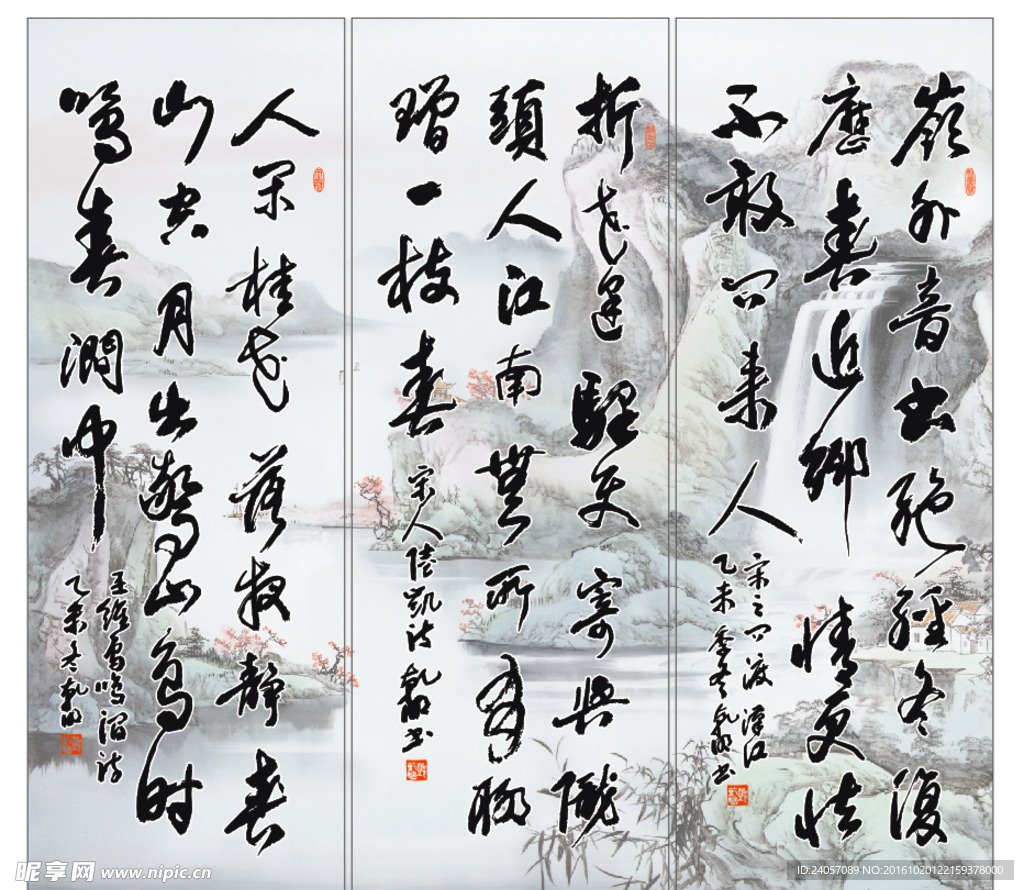 嶺外音書絕經冬復
歷春近鄉情更怯
不敢問來人
宋之問渡漢江
乙未季冬
折花逢驛使寄與隴
頭人江南無所有聊
贈一枝春
宋人陸凱詩
人閑桂花落夜靜春
山空月出驚山鳥时
鳴春澗中
王維鳥鳴澗詩
乙未冬
昵享网 www.nipic.cn
ID:24057089 NO:20161020122159378000